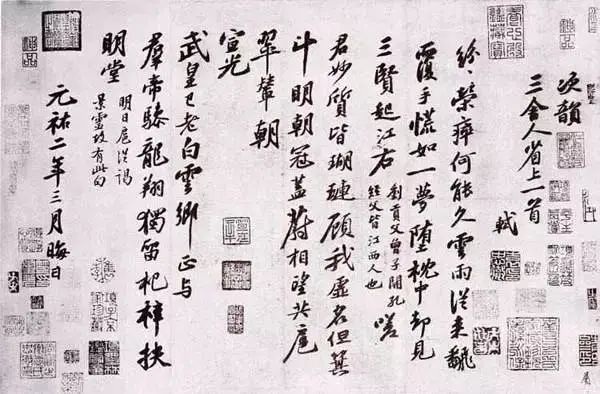 次韻
三舍人省上一首
軾
紛〻榮瘁何能久雲雨從來翻
覆手慌如一夢墮枕中却見
三賢起江右劉貢父曾子開孔
經父皆江西人也嗟
君妙質皆瑚璉顧我虛名但箕
斗明朝冠蓋蔚相望共扈
翠輦朝
宣光
武皇已老白雲鄉正与
羣帝驂龍翔獨留杞梓扶
明堂
明日扈從謁
景靈故有此句
元祐二年三月晦日